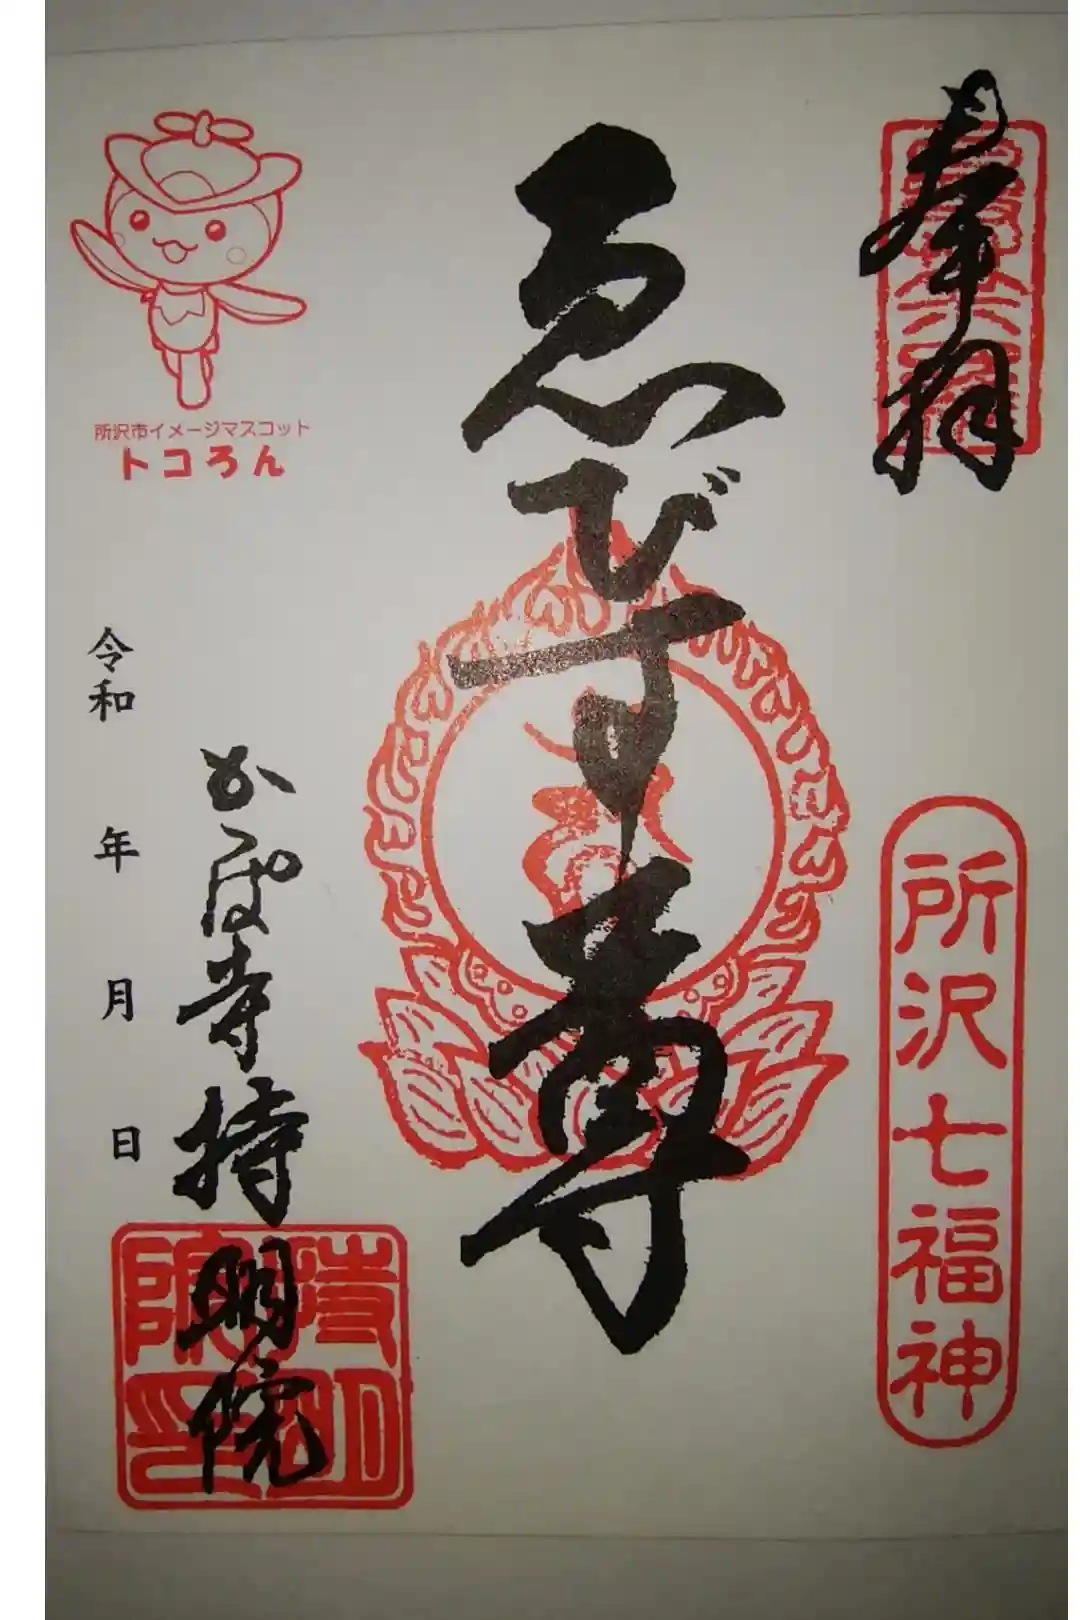 奉拝
所沢七福神
ゑびす尊
かっぱ寺持明院
持明院印
令和 年 月 日
所沢市イメージマスコット
トコろん